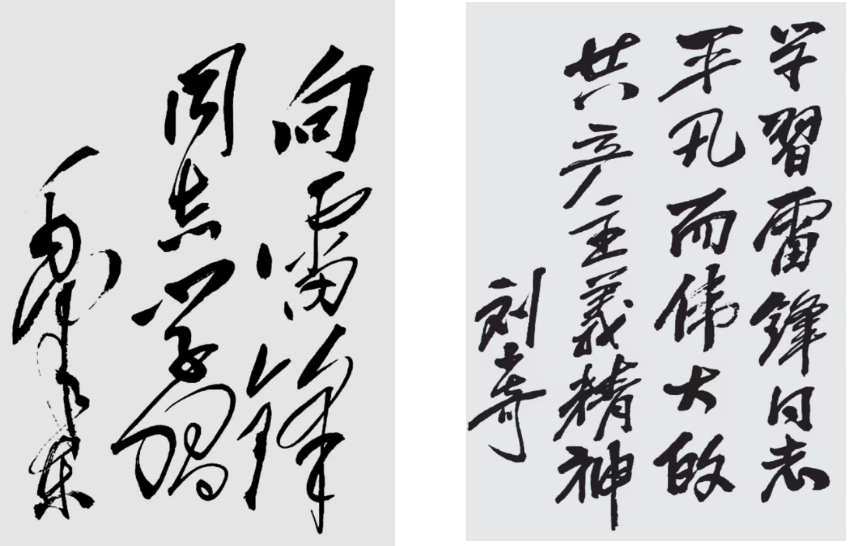 向雷锋
同志学习
毛泽东
学習雷锋同志
平凡而伟大的
共产主義精神
刘少奇